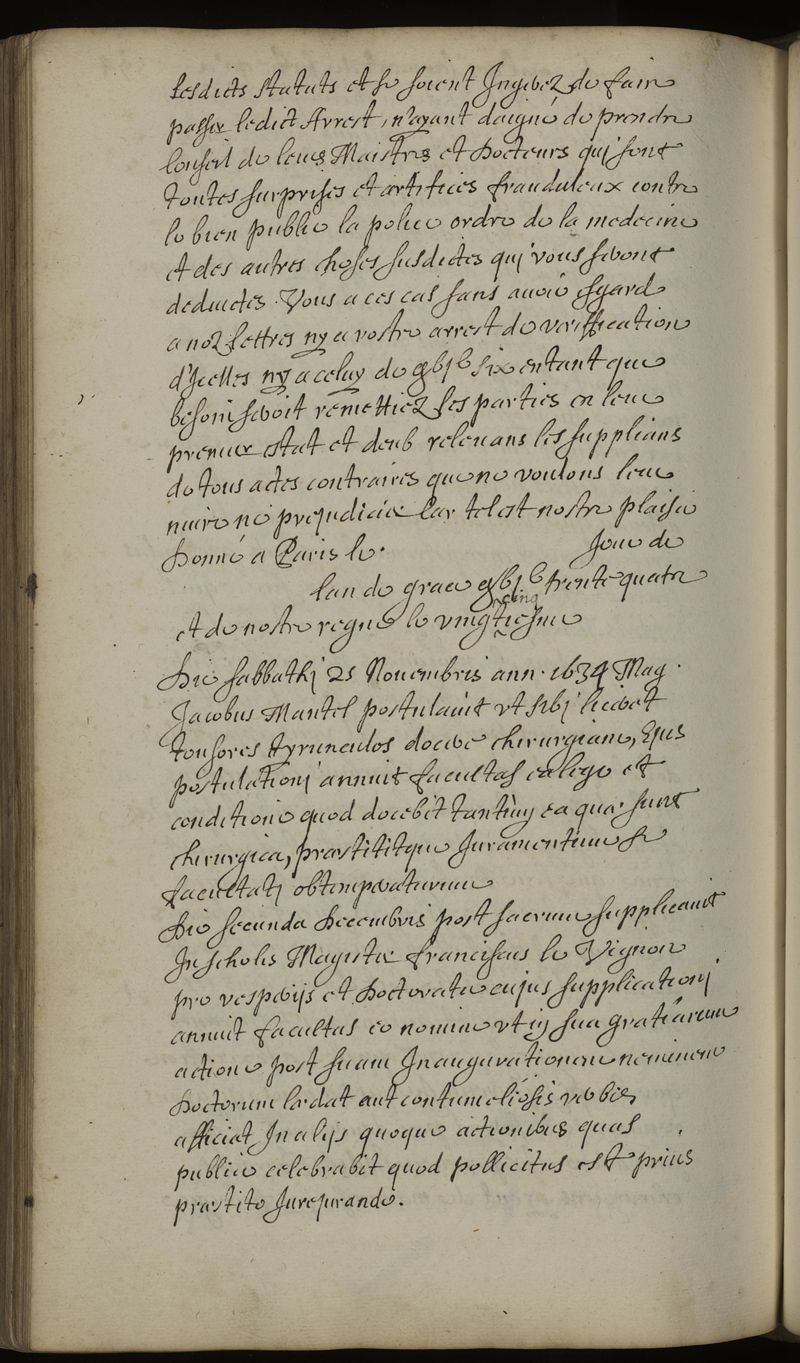 lesdicts statuts et se soient Ingerez de faire
passer ledict Arrest, n'ayant daigné de prendre
Conseil de leurs Maistres et Docteurs qui sont
toutes surprises et artifices frauduleux contre
le bien public la police ordre de la medecine
et des autres choses susdictes qui vous seront
deduictes. Vous a ces cas sans avoir esgard
a noz lettres ny a vostre arrest de veriffication
d'Icelles ny a celuy de gbjc six entant que
besoin seroit remettiez les parties en leur
premier estat et deub relevans les supplians
de tous actes contraires que ne voulons leur
nuire ne prejudicier Car tel est nostre plaisir
Donné a Paris le. Jour de
lan de grace gbjc trente quatre
et de nostre regne le vingtiesme
cinq
Die sabbathj 25 Novembris ann. 1634 Mag.
Jacobus Mantel postulavit vt sibj liceret
tonsores tyrunculos docere chirurgiam, Ejus
postulationj annuit facultas ea lege et
conditione quod docebit tantùm ea quæ sunt
chirurgica, præstititque Juramentum se
facultatj obtemperaturum
Die secunda Decembris post sacrum supplicavit
In scholis Magister franciscus le Vignon
pro vesperijs et Doctoratu cujus supplicationj
annuit facultas eo nomine vt in sua gratiárum
actione post suam Inaugurationem neminem
Doctorum lædat aut contumeliosis verbis
afficiat In alijs quoque actionibus quas
publice celebrabit quod pollicitus est prius
præstito Jurejurando.